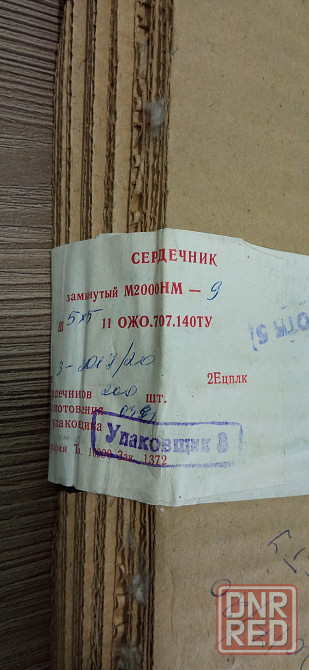 СЕРДЕЧНИК
замкнутый М2000НМ — 9
Ш 5х5 11 ОЖО.707.140ТУ
2Ецплк
рдечников 200 шт.
зготовления
упаковщика
Упаковщик 8
Т. 10000 Зак. 1372
ОТК 5
DNR
RED